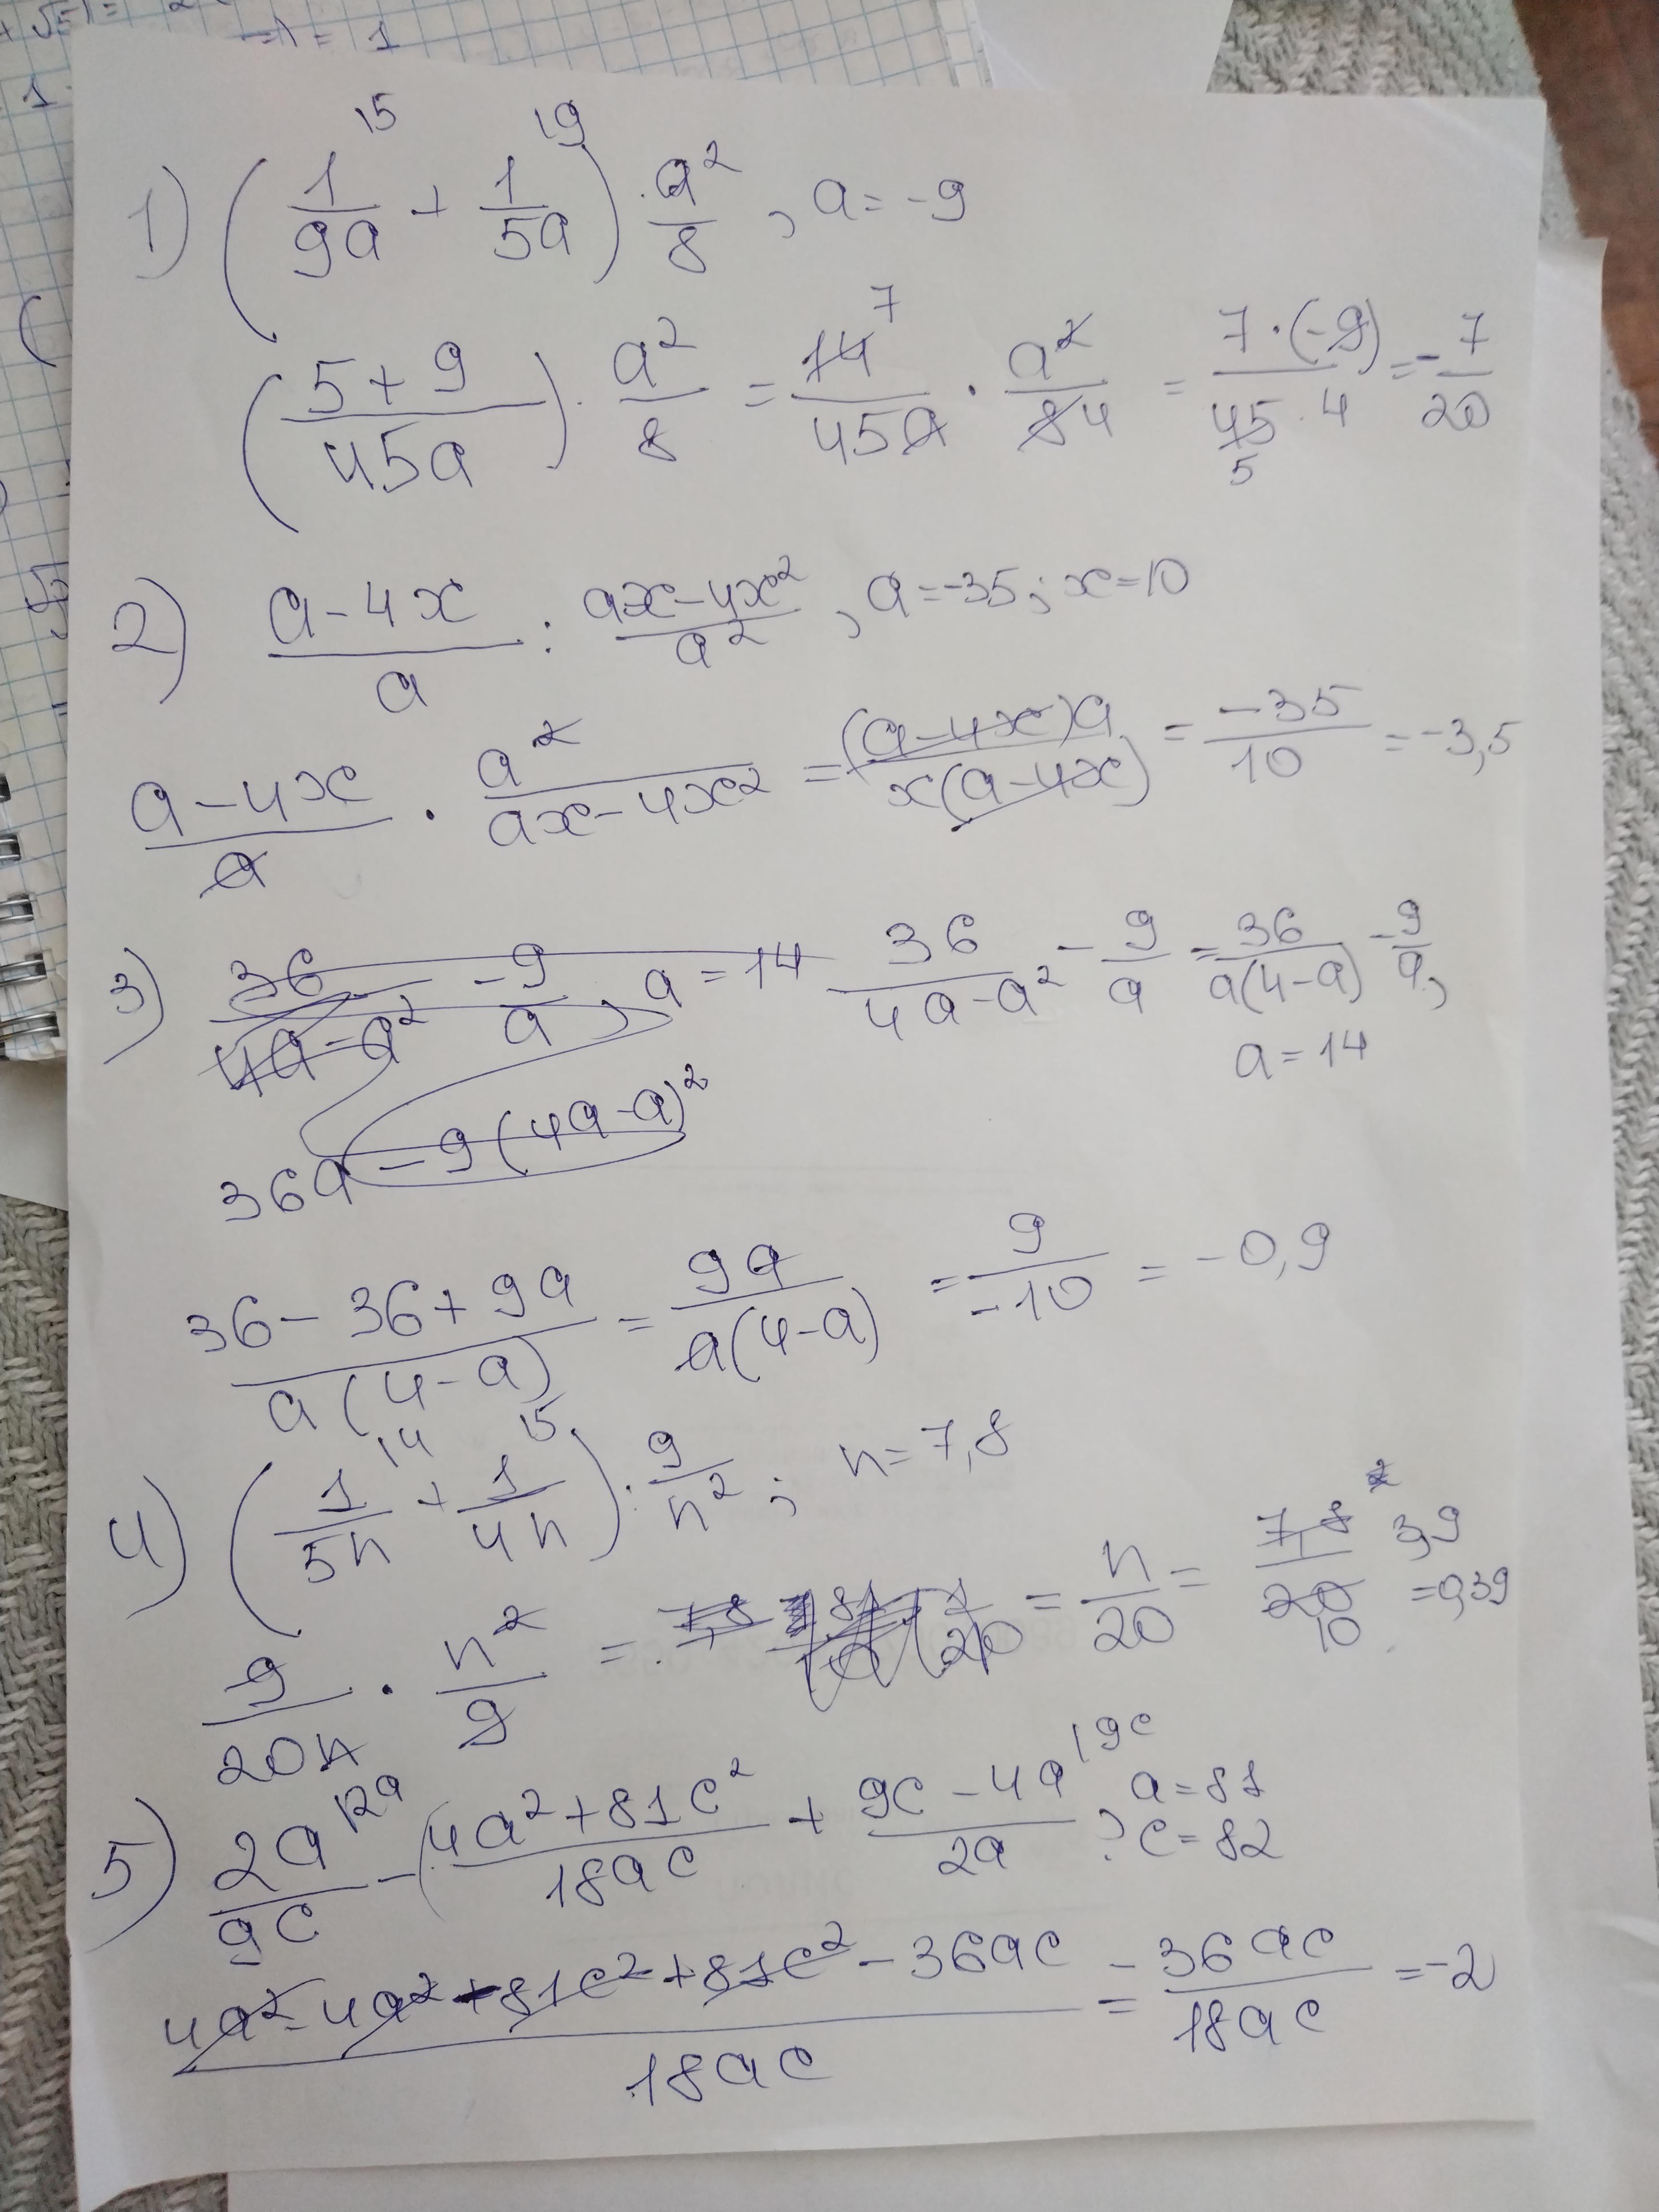 + √5 ) = 2
=> ) = 1
1
15 19
1) (1/9a + 1/5a) · a²/8 , a = -9
((5+9)/45a) · a²/8 = 14/45a · a²/8 4 = 7·(-9)/45·4 = -7/20
7
5
2) (a-4x)/a : (ax-4x²)/a² , a=-35; x=10
(a-4x)/a · a²/(ax-4x²) = (a-4x)a/x(a-4x) = -35/10 = -3,5
3) 36/(4a-a²) - 9/a , a=14 36/(4a-a²) - 9/a = 36/a(4-a) - 9/a,
a=14
36a - 9(4a-a)²
(36-36+9a)/a(4-a) = 9a/a(4-a) = 9/-10 = -0,9
14 15
4) (1/5n + 1/4n) : 9/n² ; n=7,8
9/20n · n²/9 = n/20 = 7,8/20 3,9/10 = 0,39
12a 19c
5) 2a/9c - (4a²+81c²)/18ac + (9c-4a)/2a ; a=81 c=82
(4a²-4a²-81c²+81c²-36ac)/18ac = -36ac/18ac = -2